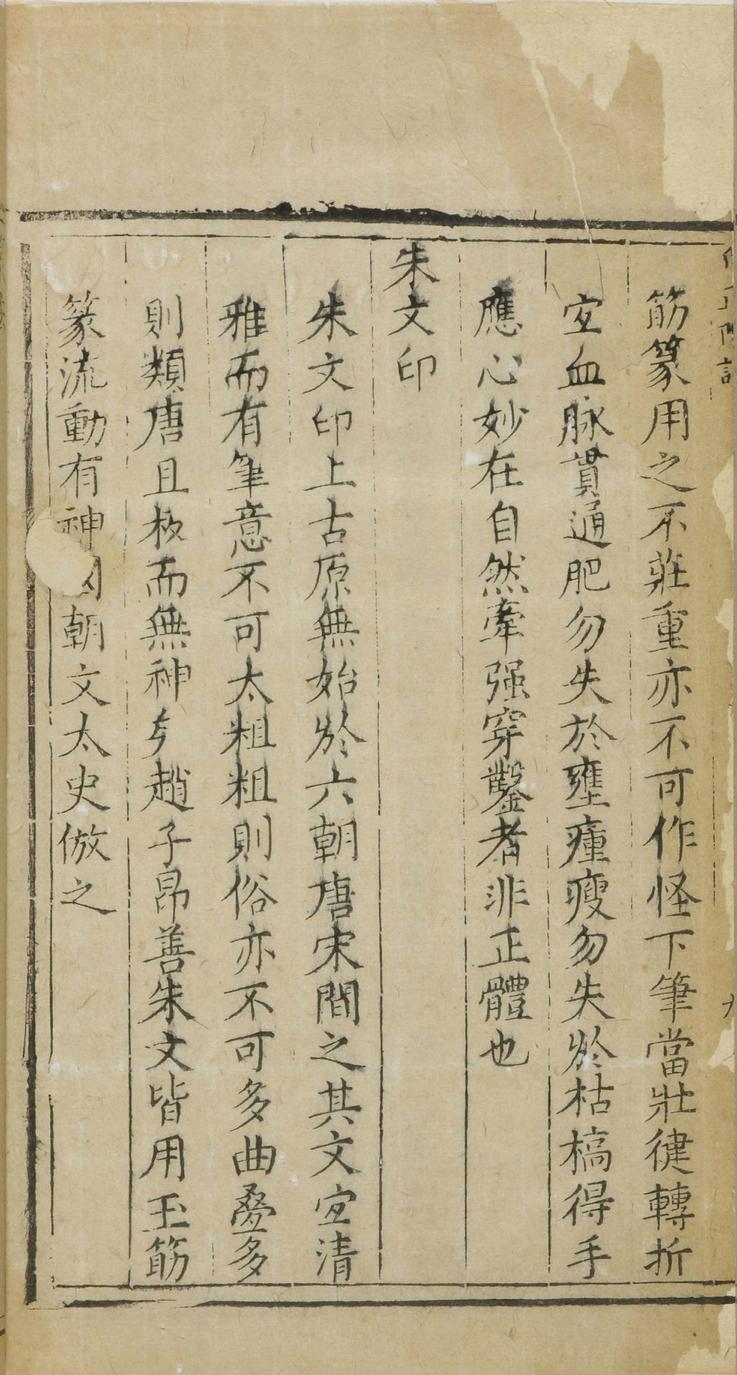 筋篆用之不莊重亦不可作怪下筆當壯徤轉折
宐血脉貫通肥勿失於壅瘇瘦勿失於枯槁得手
應心妙在自然牽强穿鑿者非正體也
朱文印
朱文印上古原無始於六朝唐宋間之其文宐清
雅而有筆意不可太粗粗則俗亦不可多曲疊多
則類唐且板而無神矣趙子昂善朱文皆用玉筯
篆流動有神國朝文太史倣之